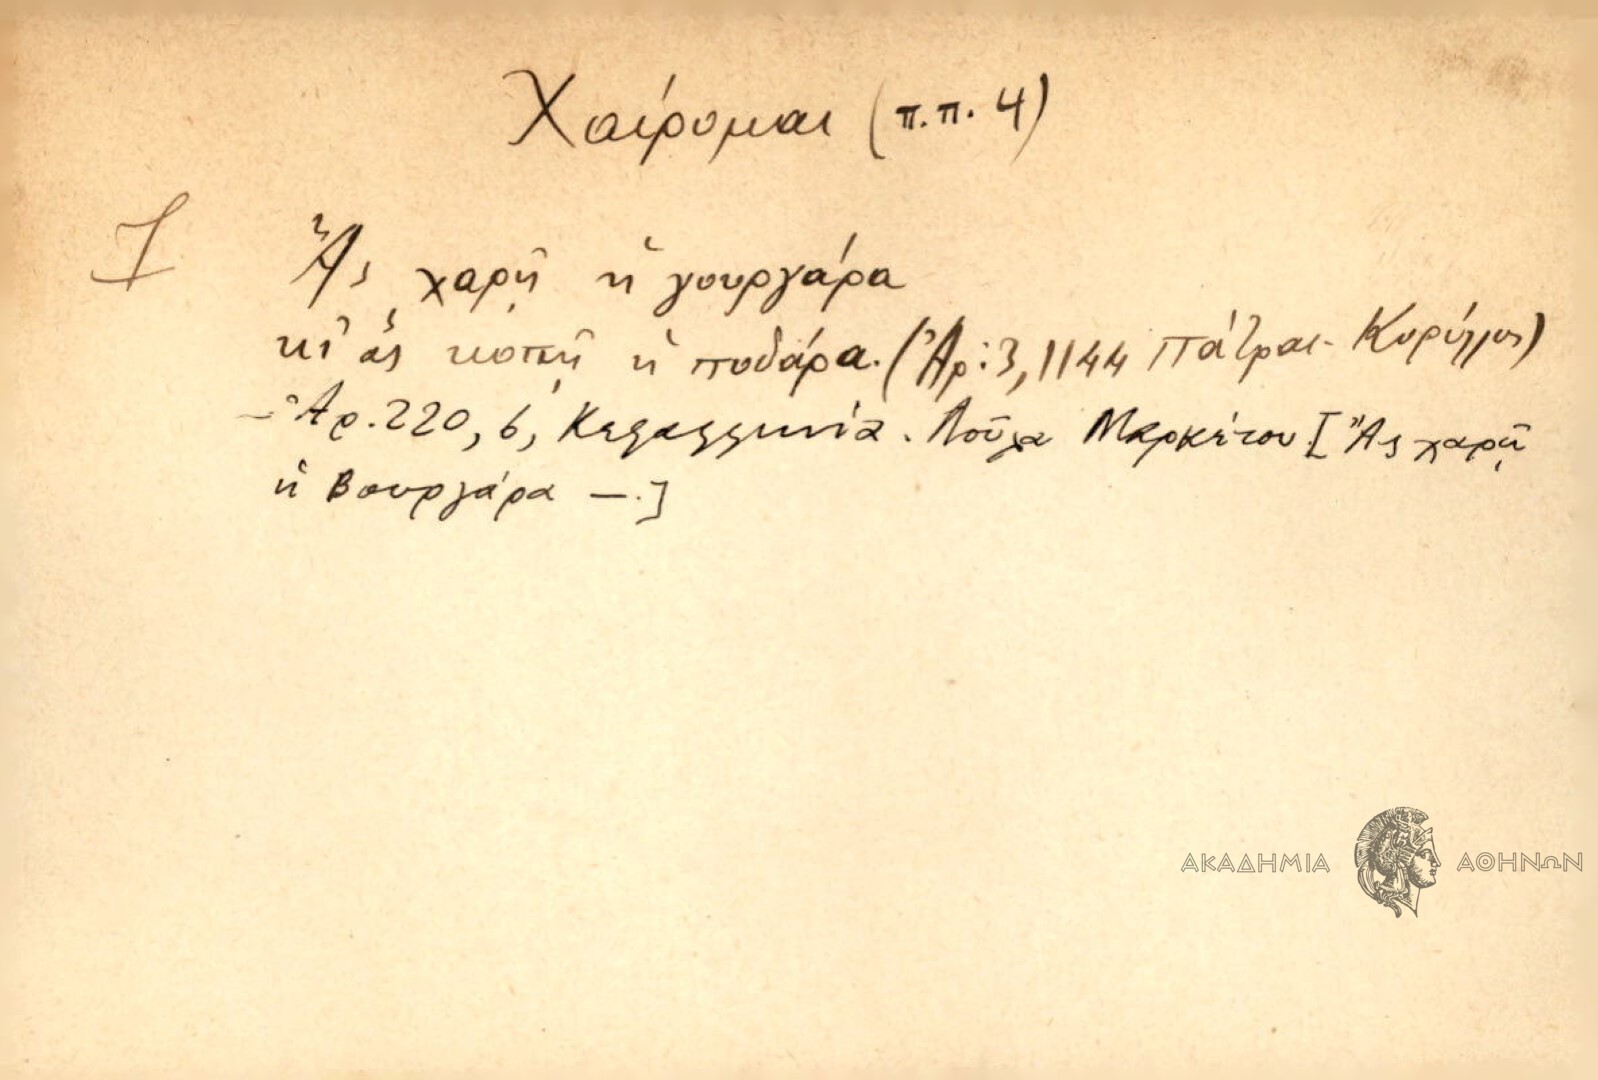 Χαίρομαι (π.π. 4)
1 Ἂς χαρῇ ἡ γουργάρα
κι᾿ ἂς κοπῇ ἡ ποδάρα. (Ἀρ: 3, 1144 Πάτραι - Κυρίλλου)
– Ἀρ. 220, 6, Κεφαλληνία. Λούλα Μαρκέτου [Ἂς χαρῇ
ἡ Βουργάρα —.]
ΑΚΑΔΗΜΙΑ ΑΘΗΝΩΝ